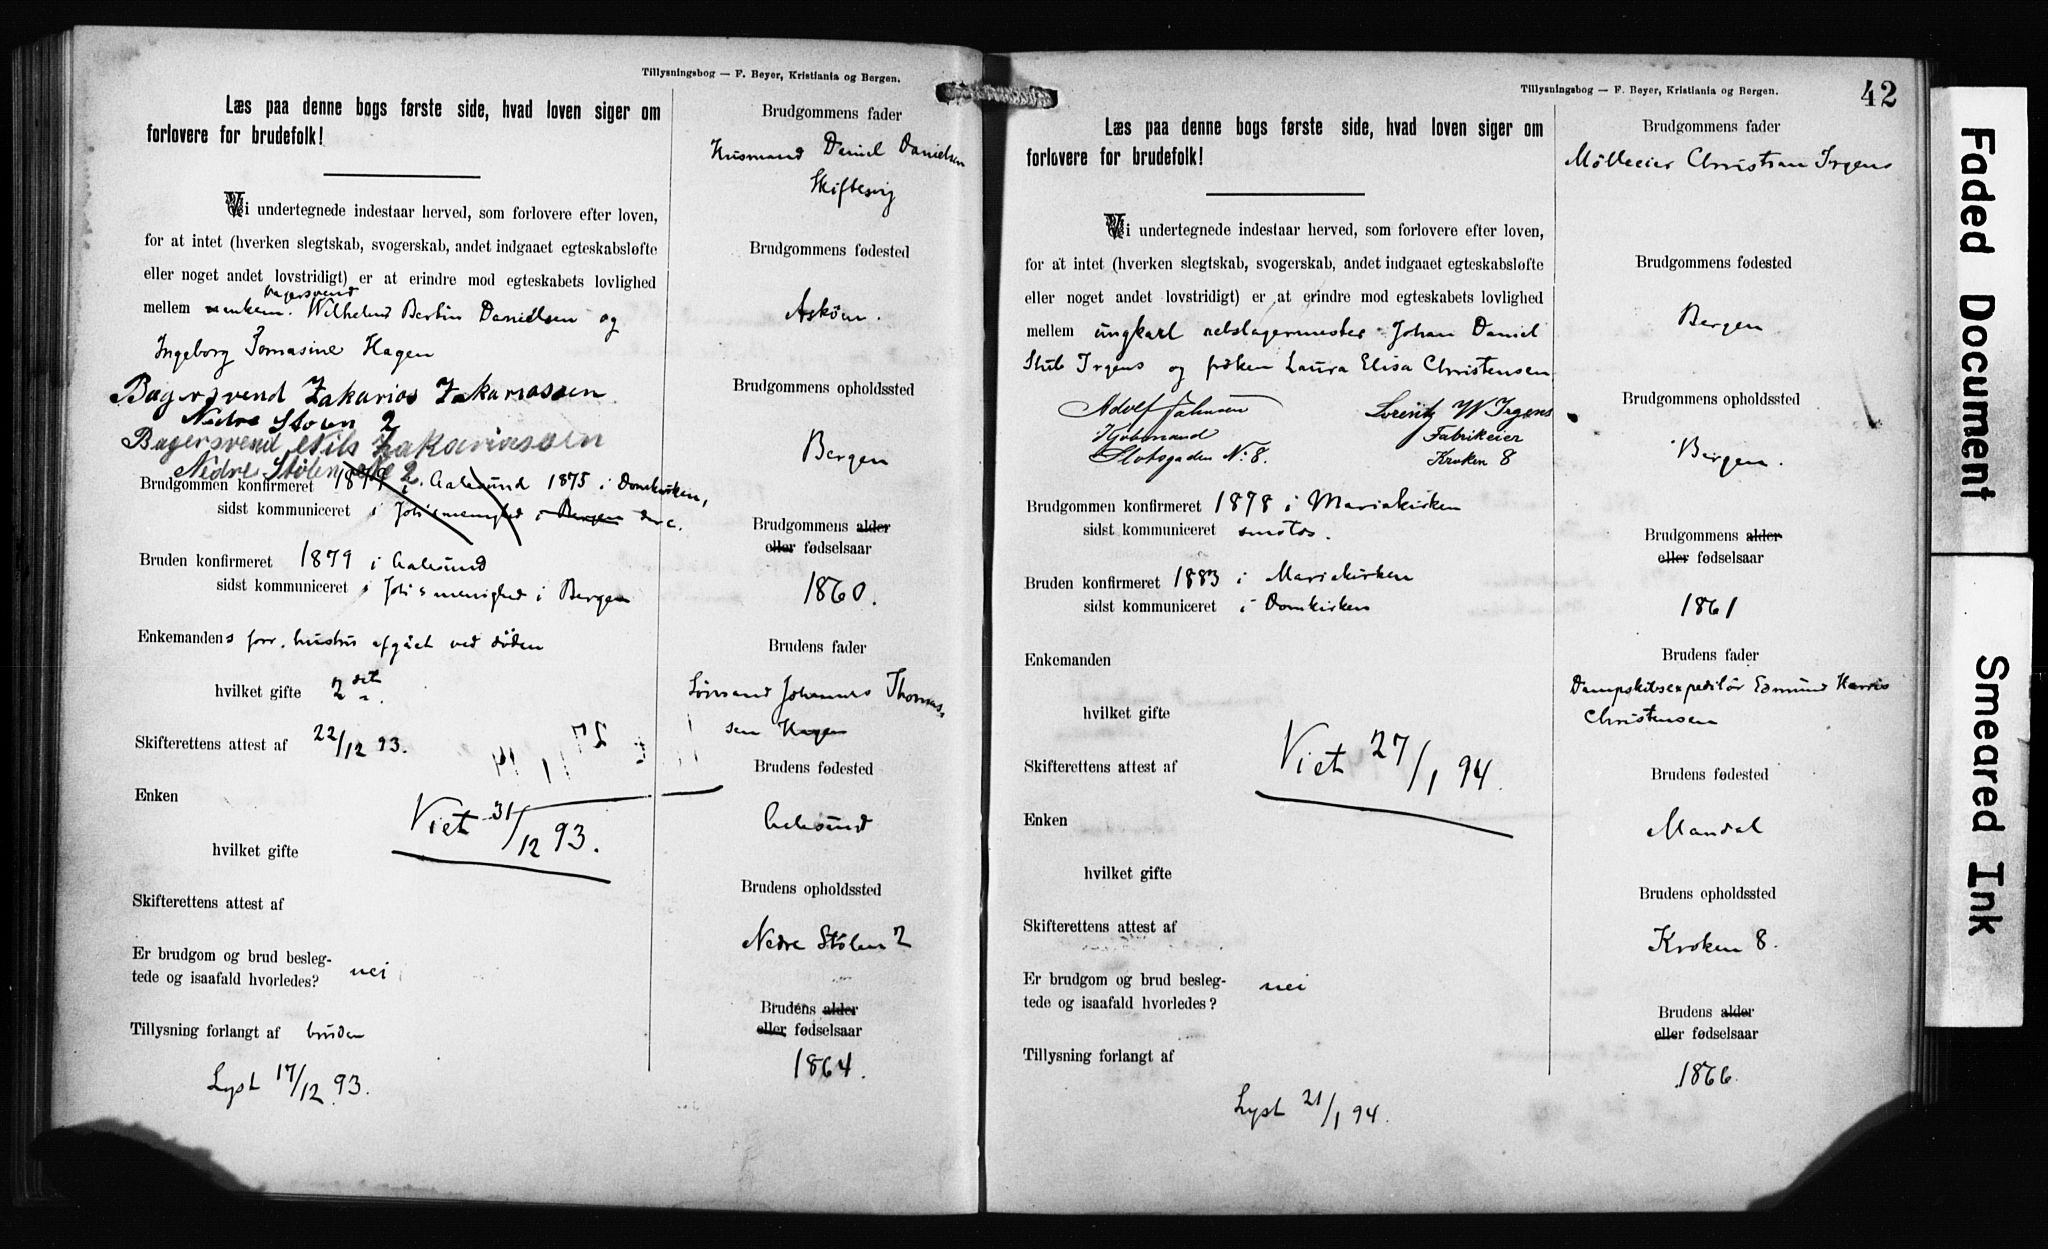 Tillysningsbog — F. Beyer, Kristiania og Bergen.
Læs paa denne bogs første side, hvad loven siger om
forlovere for brudefolk!
Vi undertegnede indestaar herved, som forlovere efter loven,
for at intet (hverken slegtskab, svogerskab, andet indgaaet egteskabsløfte
eller noget andet lovstridigt) er at erindre mod egteskabets lovlighed
bagersvend
mellem enkem. Wilhelm Bertin Danielsen og
Ingeborg Tomasine Hagen
Bagersvend Zakarias Zakariassen
Nedre Stølen 2
Bagersvend Nils Zakariassen
Nedre Stølen 2
Brudgommen konfirmeret 1879 i Aalesund 1875 i Domkirken,
sidst kommuniceret i Joh's menighed i Bergen
Bruden konfirmeret 1879 i Aalesund
sidst kommuniceret i Joh's menighed i Bergen
Enkemandens forr. hustru afgået ved døden
hvilket gifte 2det
Skifterettens attest af 22/12 93.
Enken
Viet 31/12 93.
hvilket gifte
Skifterettens attest af
Er brudgom og brud besleg-
tede og isaafald hvorledes? nei
Tillysning forlangt af bruden
Lyst 17/12 93.
Brudgommens fader
Husmand Daniel Danielsen
Skiftesvig
Brudgommens fødested
Askøen.
Brudgommens opholdssted
Bergen
Brudgommens alder
eller fødselsaar
1860.
Brudens fader
Sømand Johannes Thomas-
sen Hagen
Brudens fødested
Aalesund
Brudens opholdssted
Nedre Stølen 2
Brudens alder
eller fødselsaar
1864.
Tillysningsbog — F. Beyer, Kristiania og Bergen.
42
Læs paa denne bogs første side, hvad loven siger om
forlovere for brudefolk!
Vi undertegnede indestaar herved, som forlovere efter loven,
for at intet (hverken slegtskab, svogerskab, andet indgaaet egteskabsløfte
eller noget andet lovstridigt) er at erindre mod egteskabets lovlighed
mellem ungkarl rebslagermester Johan Daniel
Stub Irgens og frøken Laura Elisa Christensen
Adolf Johnsen
Kjøbmand
Slotsgaden No 8.
Lorentz W Irgens
Fabrikeier
Kroken 8
Brudgommen konfirmeret 1878 i Mariakirken
sidst kommuniceret smsteds.
Bruden konfirmeret 1883 i Mariakirken
sidst kommuniceret i Domkirken
Enkemanden
hvilket gifte
Skifterettens attest af
Viet 27/1 94.
Enken
hvilket gifte
Skifterettens attest af
Er brudgom og brud besleg-
tede og isaafald hvorledes? nei
Tillysning forlangt af
Lyst 21/1 94.
Brudgommens fader
Mølleeier Christian Irgens
Brudgommens fødested
Bergen
Brudgommens opholdssted
Bergen.
Brudgommens alder
eller fødselsaar
1861
Brudens fader
Dampskibsexpeditør Edmund Harris
Christensen
Brudens fødested
Mandal
Brudens opholdssted
Kroken 8.
Brudens alder
eller fødselsaar
1866.
Faded Document
Smeared Ink